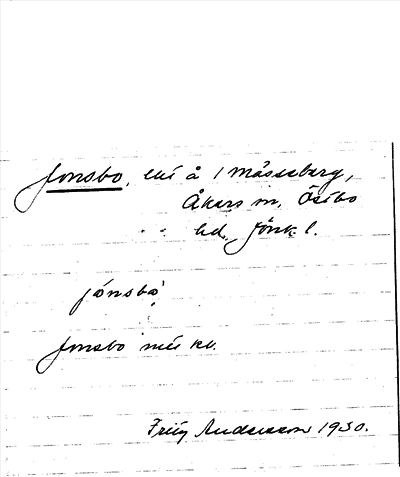 Jonsbo, å 1 Måsseberg,
Åkers sn, Östbo
hd. Jönk l.
jónsbo
Jonsbo
Fritz Andersson 1930.